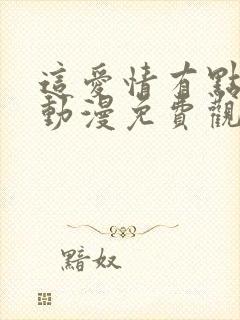 這愛情有點
動漫免費觀
黯奴